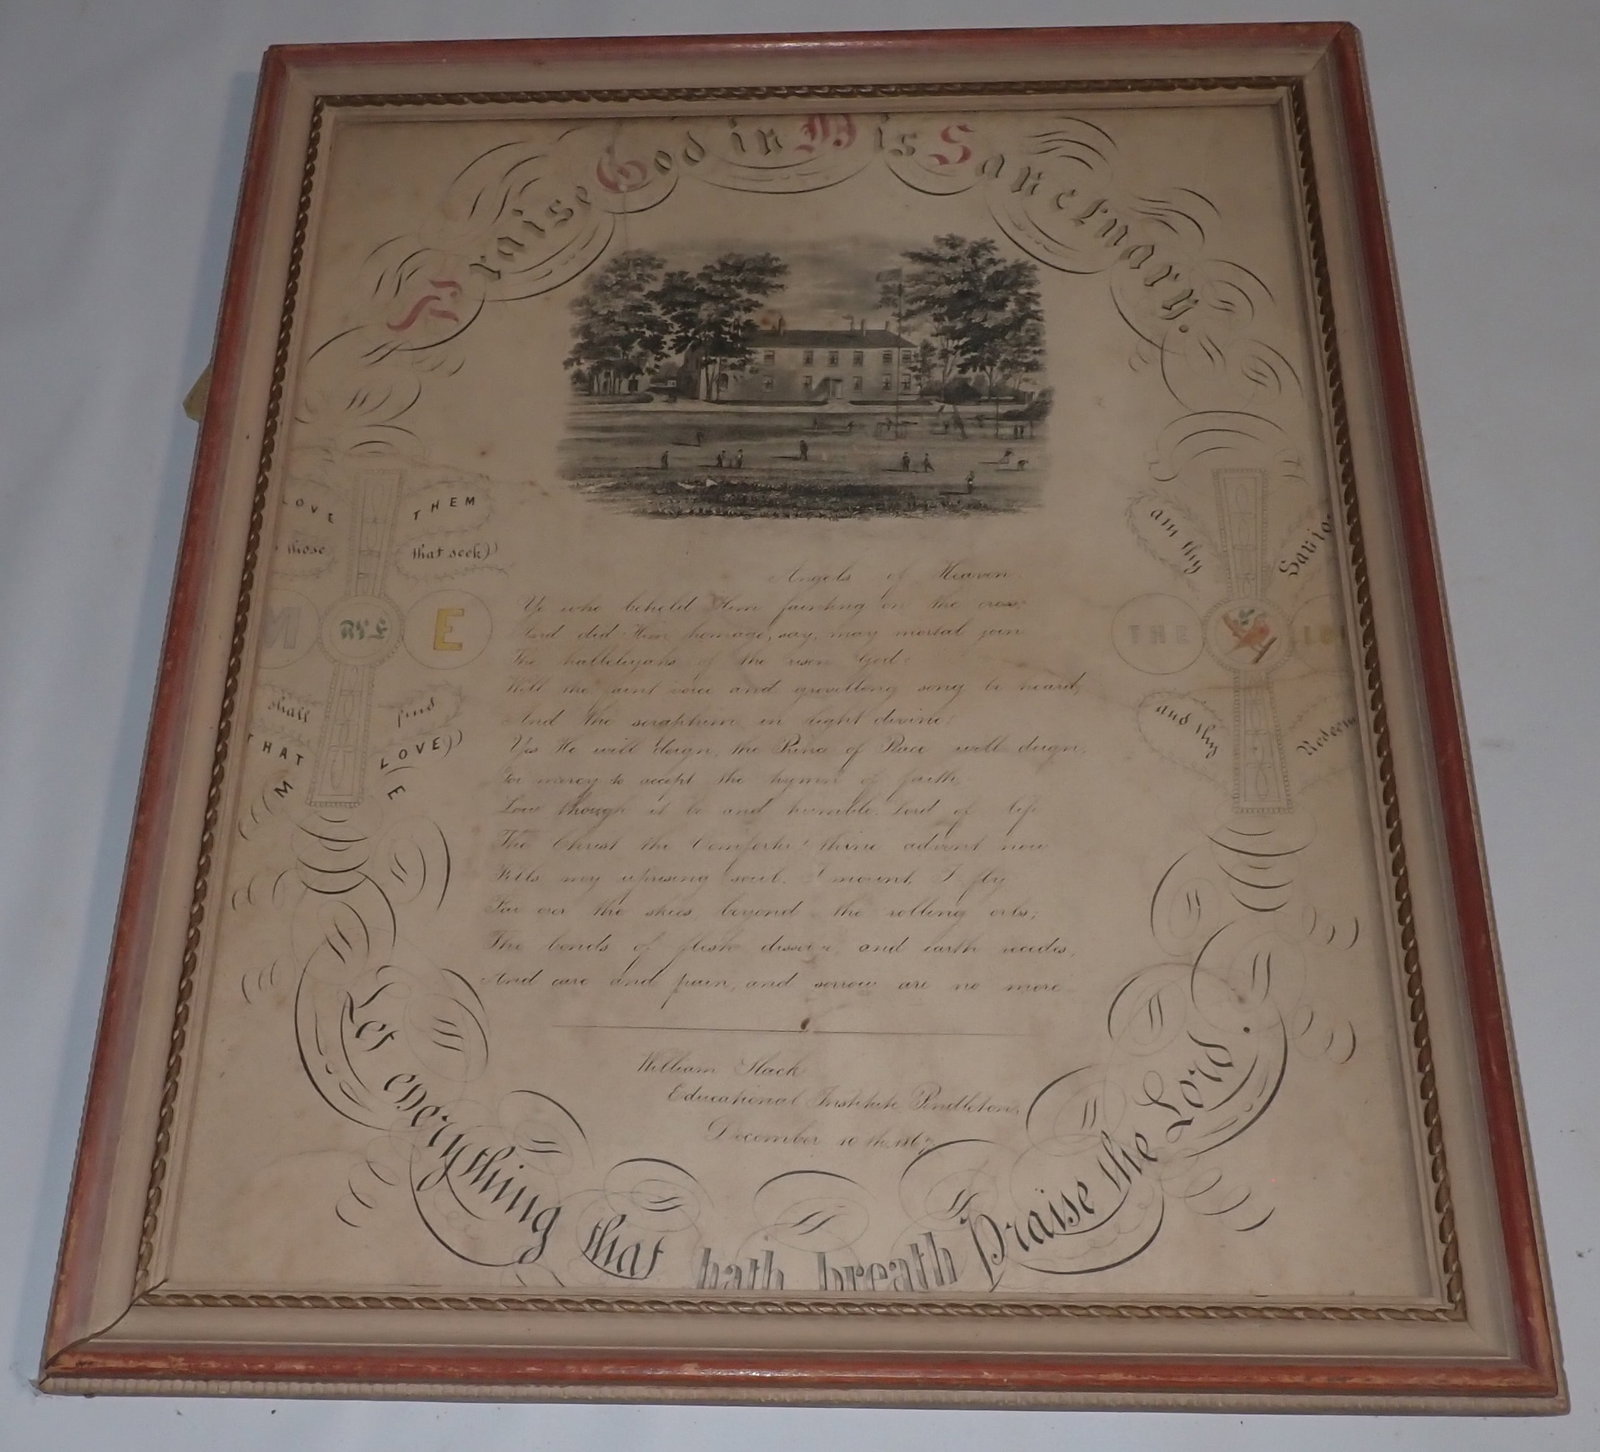 Praise God in His Sanctuary.
LOVE THEM
those that seek
ME
shall find
THAT LOVE
ME
am thy Savio
THE LO
and thy Redeem
Angels of Heaven
Ye who beheld Him fainting on the cross
And did Him homage, say, may mortal join
The hallelujahs of the risen God:
Will the faint voice and grovelling song be heard,
And the seraphim in light divine!
Yes He will deign, the Prince of Peace will deign,
For mercy to accept the hymn of faith
Low though it be and humble. Lord of life
The Christ the Comforter! thine advent now
Fills my uprising soul. I mount, I fly
Far over the skies, beyond the rolling orbs;
The bonds of flesh dissolve, and earth recedes,
And care and pain, and sorrow are no more
William Slack
Educational Institute Pendleton,
December 10 th
Let everything that hath breath Praise the Lord.